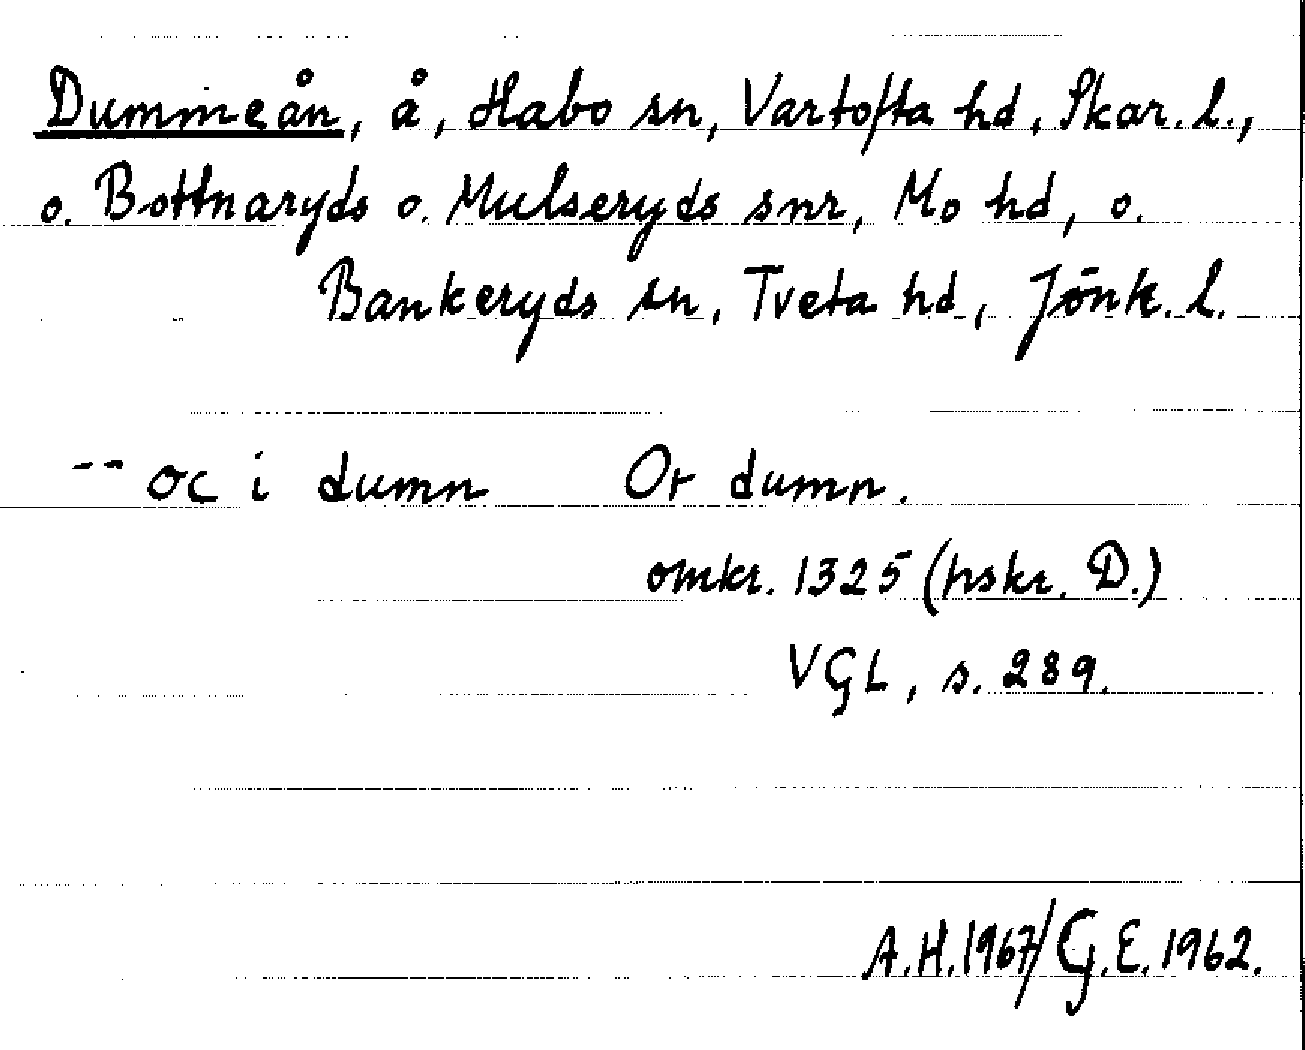 Dummeån, å, Habo sn, Vartofta hd, Skar. l.,
o. Bottnaryds o. Mulseryds snr, Mo hd, o.
Bankeryds sn, Tveta hd, Jönk. l.
-- oc i dumn Or dumn.
omkr. 1325 (hskr. D.)
VGL, s. 289.
A.H.1967/G.E.1962.